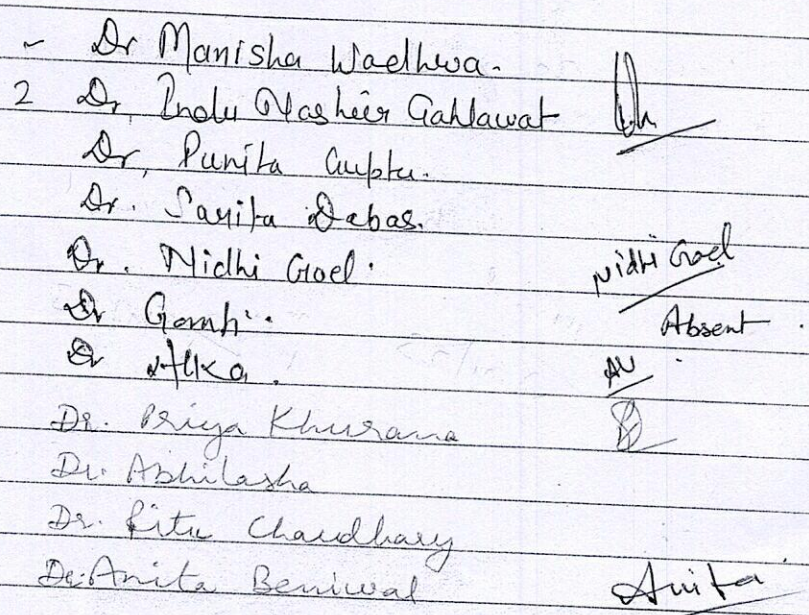 Dr Manisha Wadhwa.
2 Dr. Indu Nashier Gahlawat
Dr, Punita Gupta.
Dr. Sarita Dabas.
Dr. Nidhi Goel. Nidhi Goel
Dr Absent
Dr Alka.
Dr. Priya Khurana
Dr. Abhilasha
Dr. Ritu Chaudhary
Dr. Anita Beniwal Anita